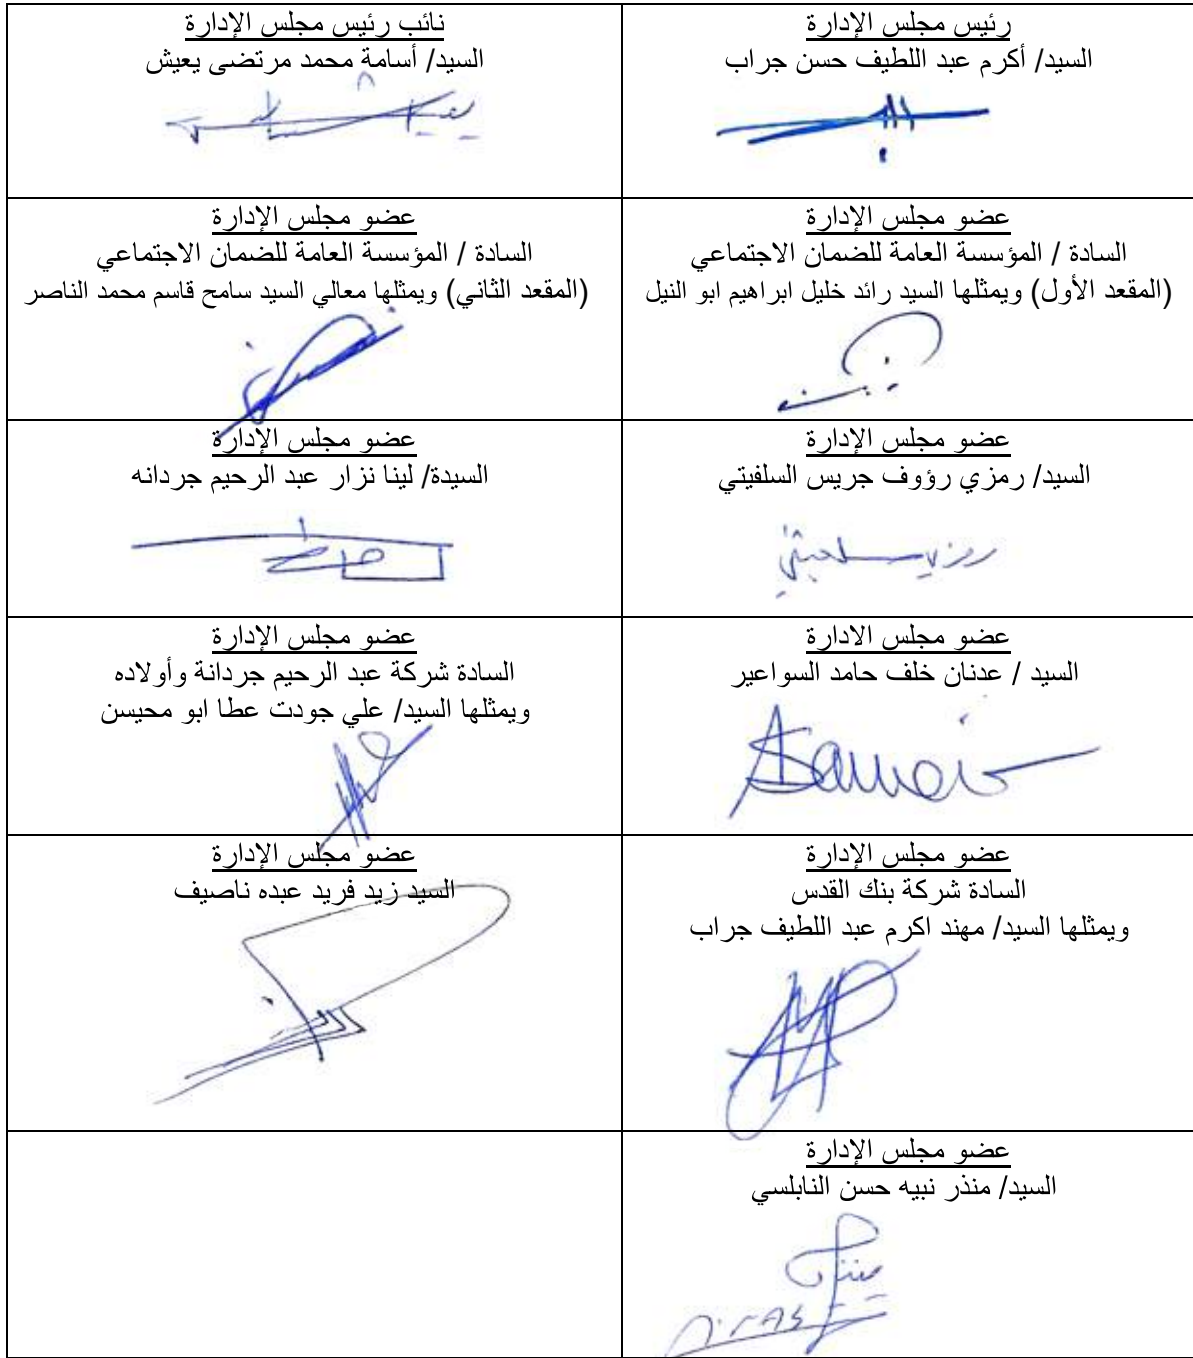 رئيس مجلس الإدارة
السيد/ أكرم عبد اللطيف حسن جراب
نائب رئيس مجلس الإدارة
السيد/ أسامة محمد مرتضى يعيش
عضو مجلس الإدارة
السادة / المؤسسة العامة للضمان الاجتماعي
(المقعد الأول) ويمثلها السيد رائد خليل ابراهيم ابو النيل
عضو مجلس الإدارة
السادة / المؤسسة العامة للضمان الاجتماعي
(المقعد الثاني) ويمثلها معالي السيد سامح قاسم محمد الناصر
عضو مجلس الإدارة
السيد/ رمزي رؤوف جريس السلفيتي
عضو مجلس الإدارة
السيدة/ لينا نزار عبد الرحيم جردانه
عضو مجلس الادارة
السيد / عدنان خلف حامد السواعير
عضو مجلس الإدارة
السادة شركة عبد الرحيم جردانة وأولاده
ويمثلها السيد/ علي جودت عطا ابو محيسن
عضو مجلس الإدارة
السادة شركة بنك القدس
ويمثلها السيد/ مهند اكرم عبد اللطيف جراب
عضو مجلس الإدارة
السيد زيد فريد عبده ناصيف
عضو مجلس الإدارة
السيد/ منذر نبيه حسن النابلسي